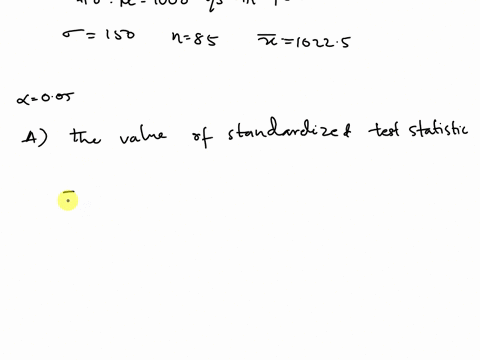 σ = 150 n = 85 x̄ = 1022.5
α = 0.05
A) the value of standardized test statistic